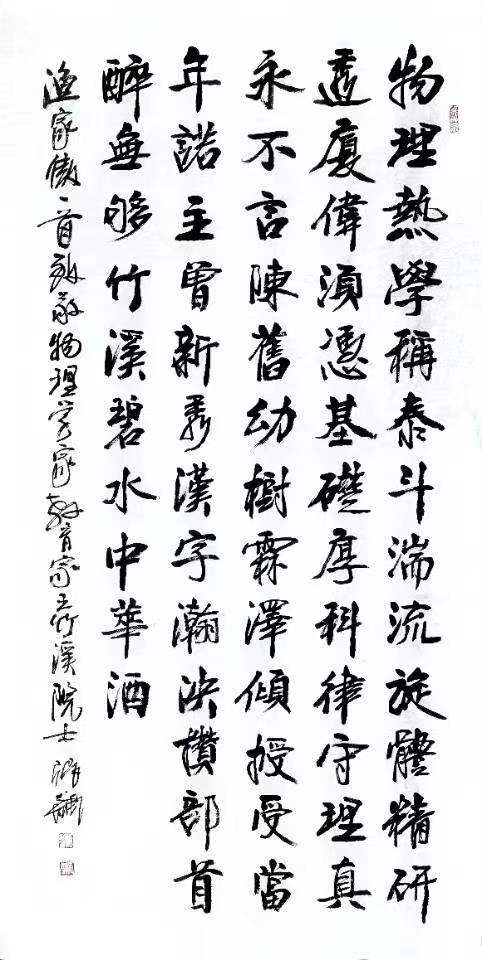 物理熱學稱泰斗湍流旋體精研
透廈偉須憑基礎厚科律守理真
永不言陳舊幼樹霖澤傾授受當
年諾主曾新秀漢字瀚泱攢部首
醉無够竹溪碧水中華酒
渔家傲一首致敬物理学家教育家王竹溪院士